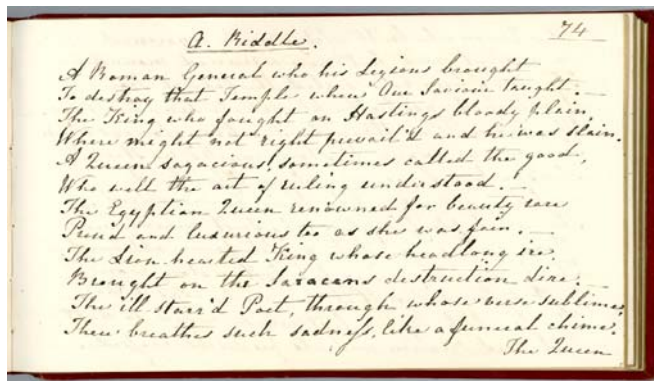 A. Riddle.
74
A Roman General who his Legions brought
To destroy that Temple where Our Saviour taught.—
The King who fought on Hastings bloody plain,
Where might not right prevail'd and he was slain.
A Queen sagacious, sometimes called the good,
Who well the art of ruling understood.—
The Egyptian Queen renowned for beauty rare
Proud and luxurious too as she was fair.—
The Lion hearted King whose headlong ire,
Brought on the Saracens destruction dire.—
The ill starr'd Poet, through whose verse sublime,
There breathes such sadness, like a funeral chime.
The Queen